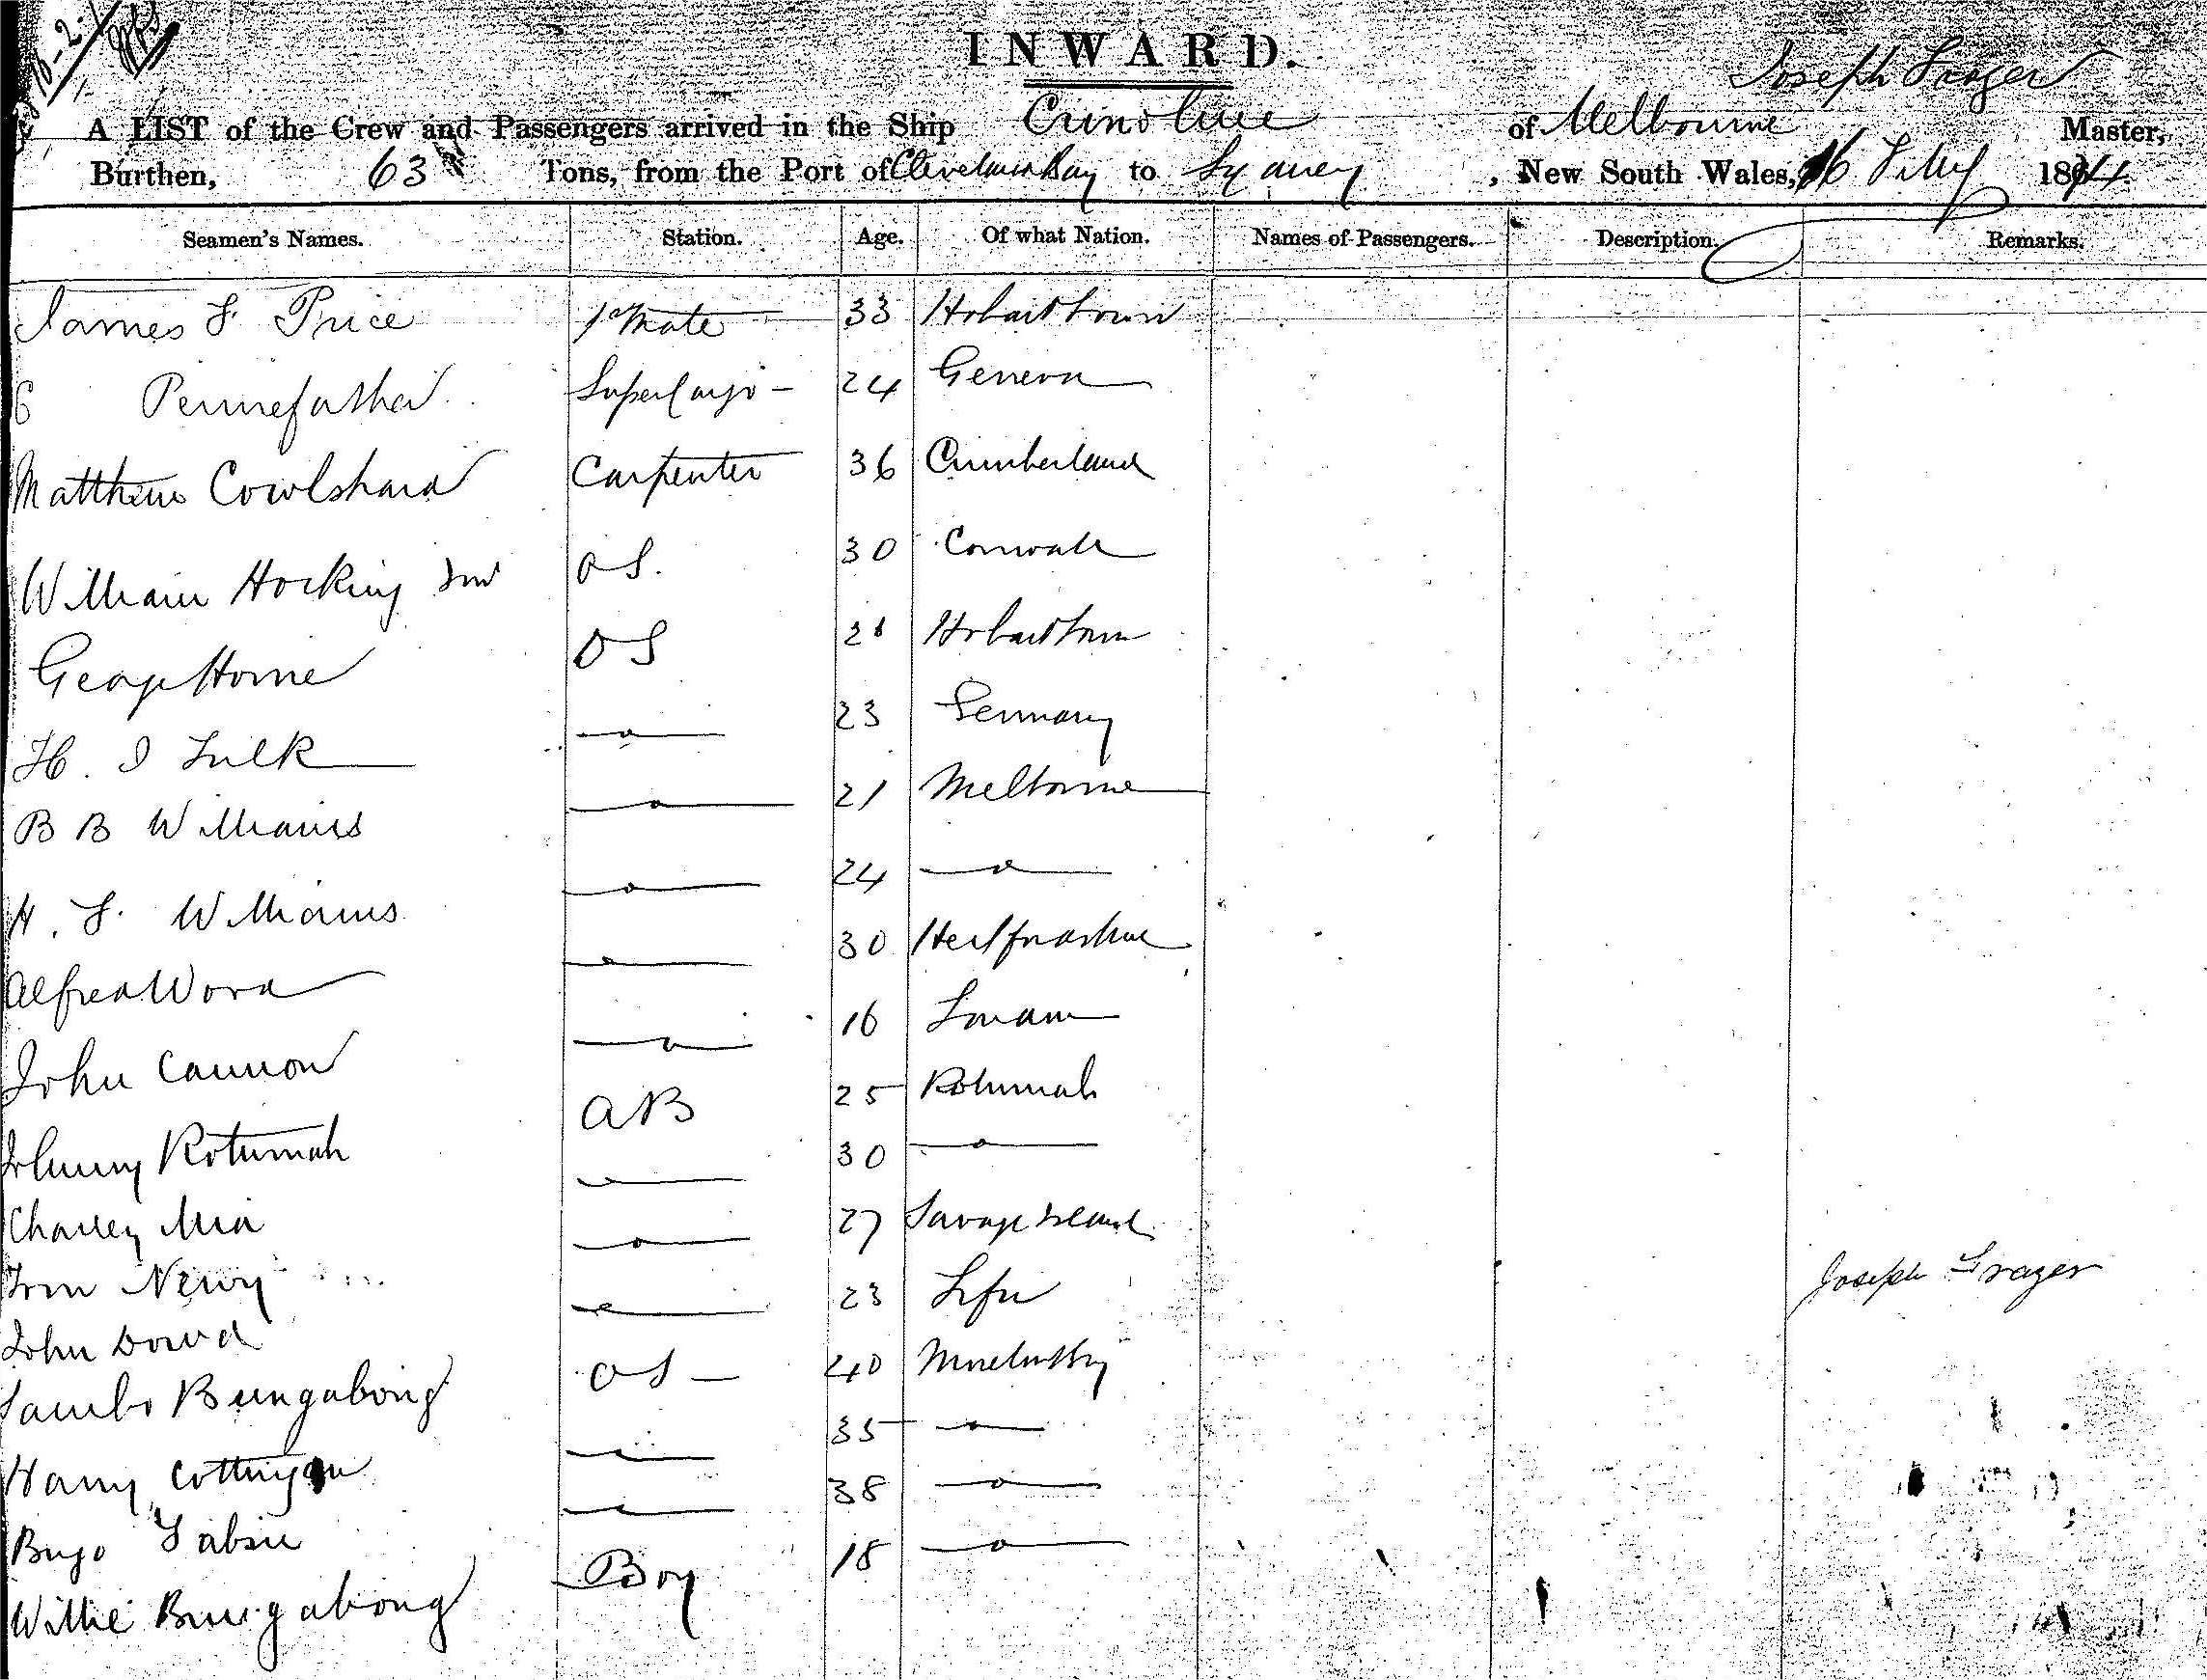 INWARD.
Joseph Frazer
A LIST of the Crew and Passengers arrived in the Ship Crinoline of Melbourne Master,
Burthen, 63 Tons, from the Port of Cleveland Bay to Sydney, New South Wales, 16 Feby 1874
Seamen's Names. Station. Age. Of what Nation. Names of Passengers. Description. Remarks.
James F. Price 1st Mate 33 Hobart Town
C Pennefather Supercargo 24 Geneva
Matthew Cowlshard Carpenter 36 Cumberland
William Hocking OS. 30 Cornwall
George Horne OS Hobart Town
H. I — o — 23 Germany
B B Williams — o — 21 Melbourne
H. F. Williams — o — 24 — o —
Alfred Word — o — 30 Hertfordshire
John Cannon — o — 16 London
Johnny Rotumah AB 25 Rotumah
Charley — o — 30 — o —
Tom Newy — o — 27 Savage Island
John Dowd — o — 23 Lifu
Joseph Frazer
Sambo Bungabong OS — 40
Harry — o — 35 — o —
— o — 38 — o —
Willie Bungabong Boy 18 — o —